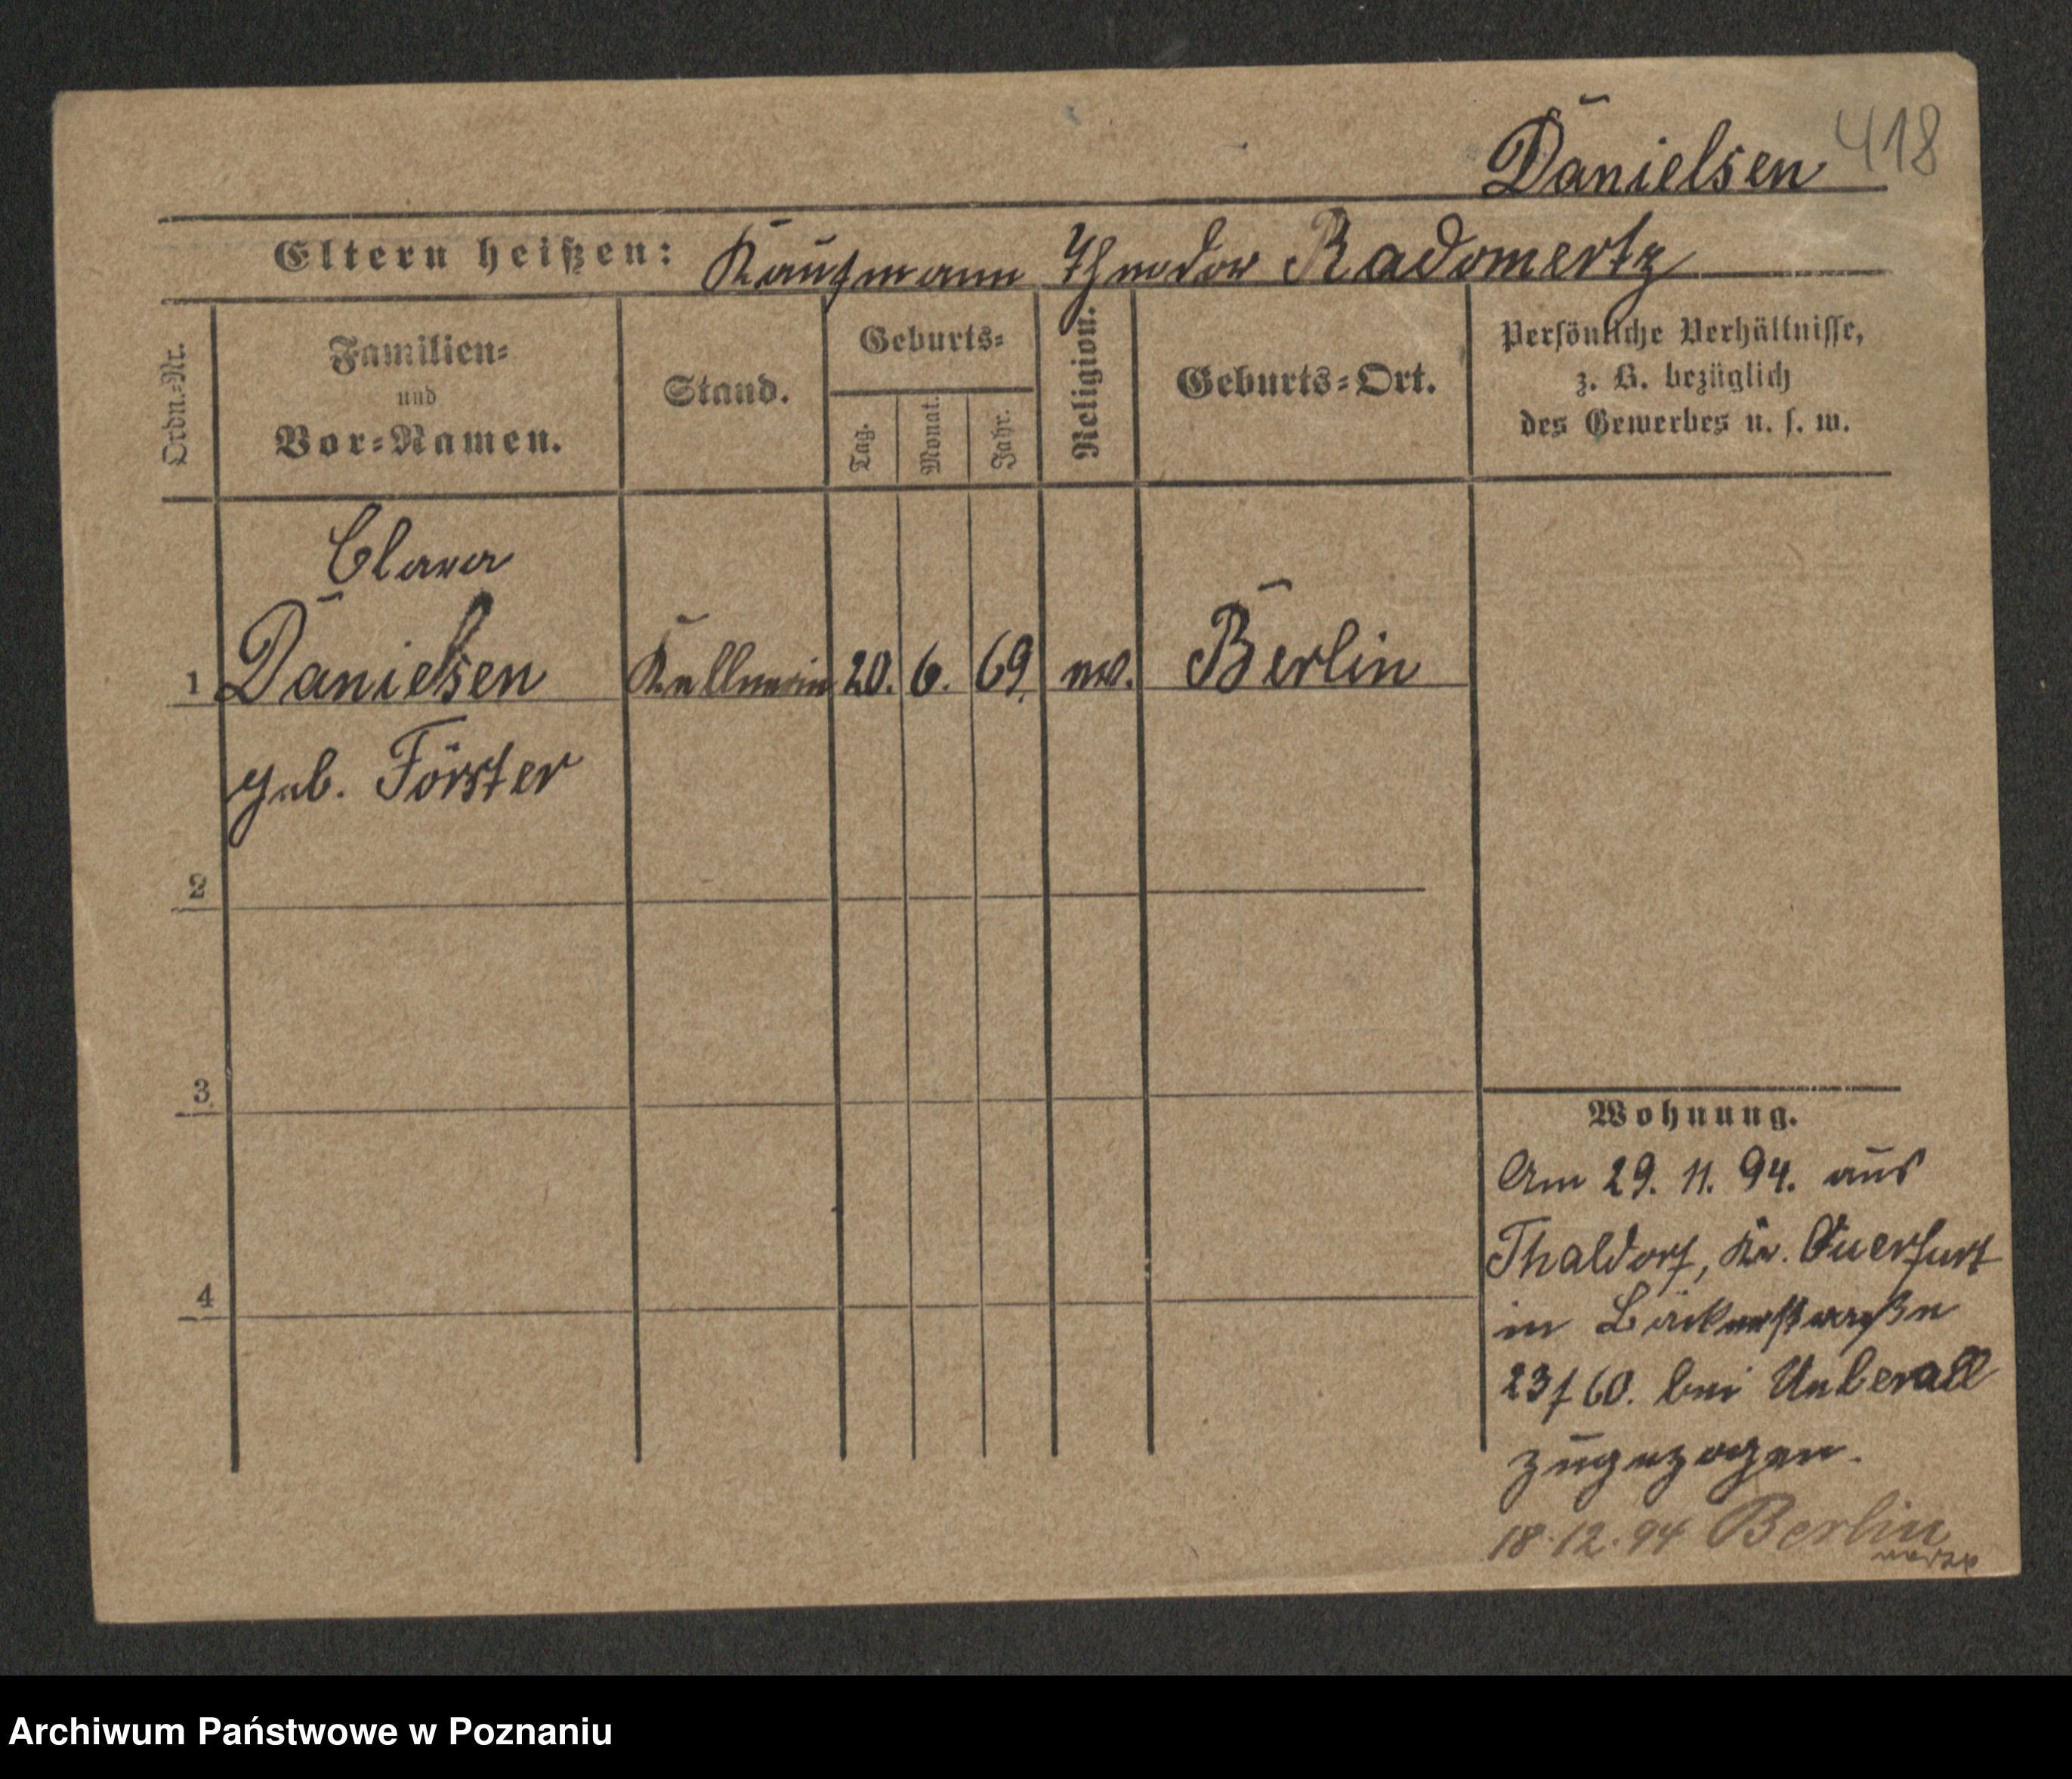 Danielsen 418
Eltern heißen: Kaufmann Theodor Radomertz
Ordn.-Nr.
Familien-
und
Vor-Namen.
Stand.
Geburts-
Tag.
Monat.
Jahr.
Religion.
Geburts-Ort.
Persönliche Verhältnisse,
z. B. bezüglich
des Gewerbes u. s. w.
Clara
1 Danielsen Kellnerin 20. 6. 69. ev. Berlin
geb. Förster
2
3
4
Wohnung.
Am 29. 11. 94. aus
Thaldorf, Kr. Querfurt
in Bäckerstraße
23/60. bei Ueberall
zugezogen.
18.12.94 Berlin
Archiwum Państwowe w Poznaniu